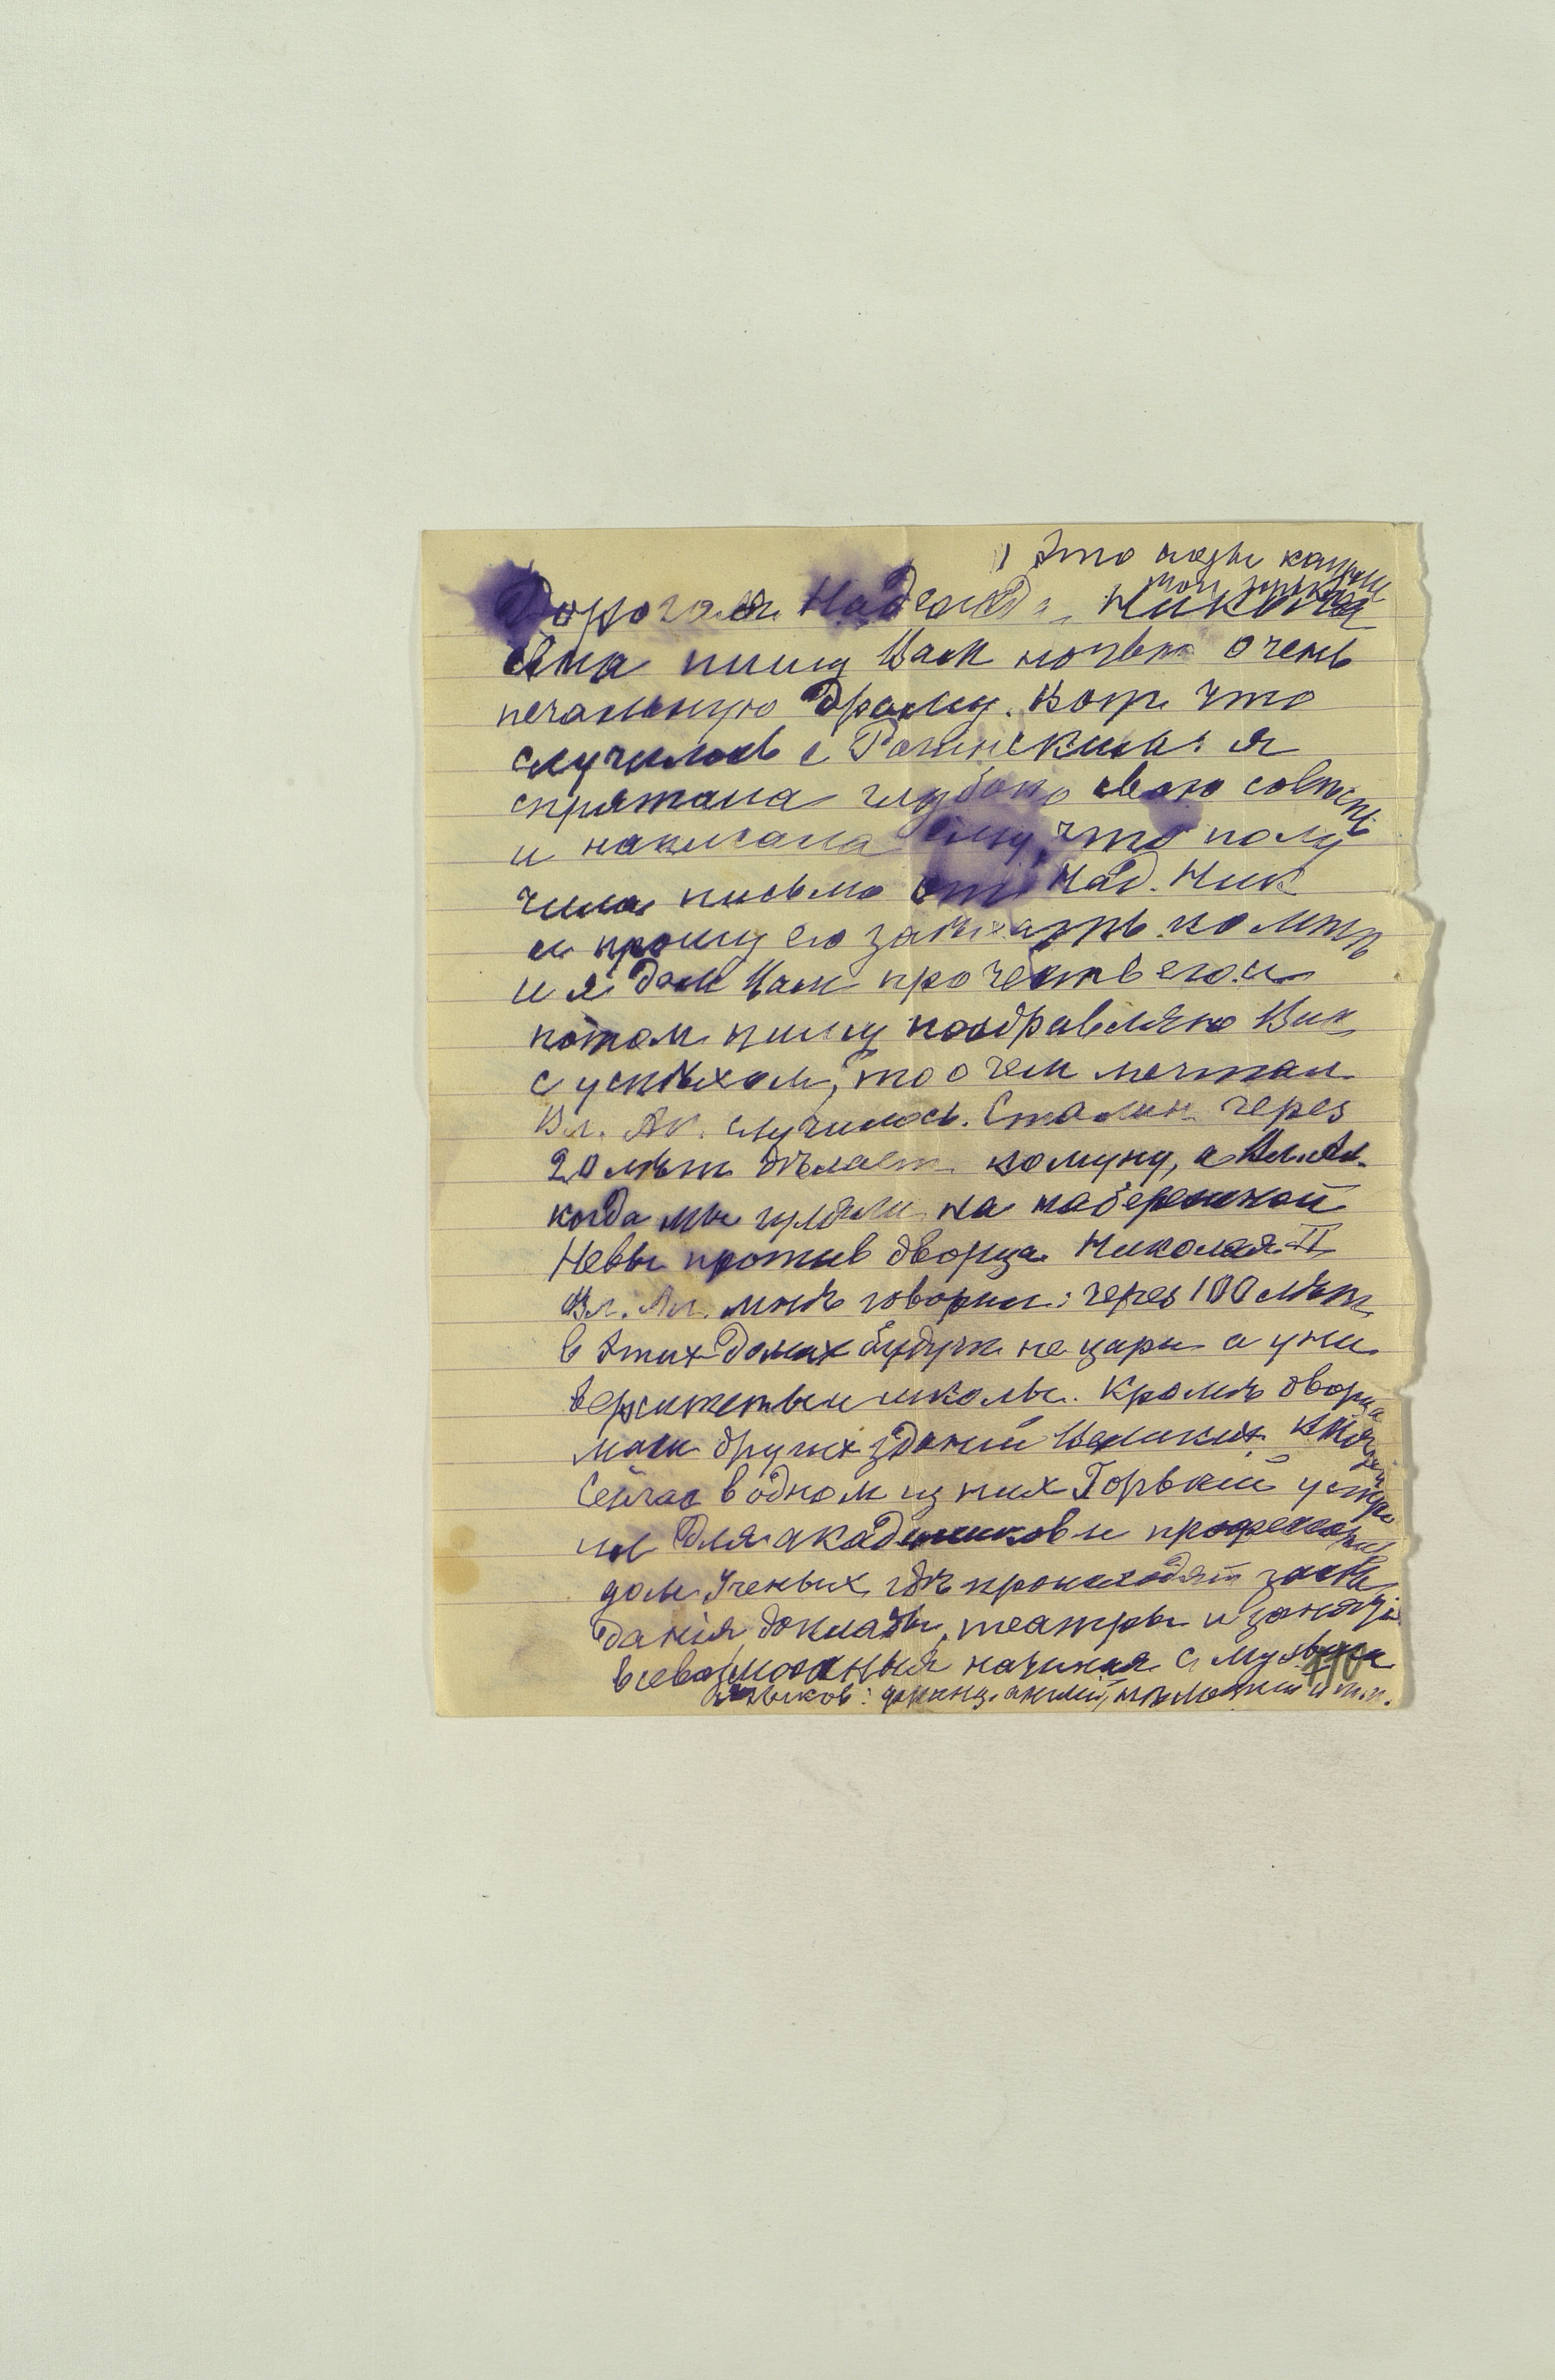 1 Это люди
Дорогая Надежда Никола
евна пишу Вам ночью очень
печальную драму. Вотъ что
случилось с Ратнским: я
спрятала глубоко свою совѣсть
и написала ему, что полу
чила письмо от Над. Ник
и прошу его заѣхать ко мнѣ
и я дам Вам прочесть его и
потом пишу поздравляю Вас
с успѣхом, то о чем мечтал
Вл. Ал. случилось. Сталин через
20 лѣт дѣлает комуну, а Вл. Ал.
когда мы гуляли на набережной
Невы против дворца Николая II
Вл. Ал. мнѣ говорил: через 100 лѣт
в этих домах будут не цари а уни
верситеты и школы. Кромѣ дворца
масса других зданий Великих Князей
Сейчас в одном из них Горький устро
ил для академиков и профессоров
дом Ученых гдѣ происходят засѣ
данія, доклады, театры и занятія
всевозможныя начиная с музыки
языков: француз. англий, нѣмецкий и т.п.